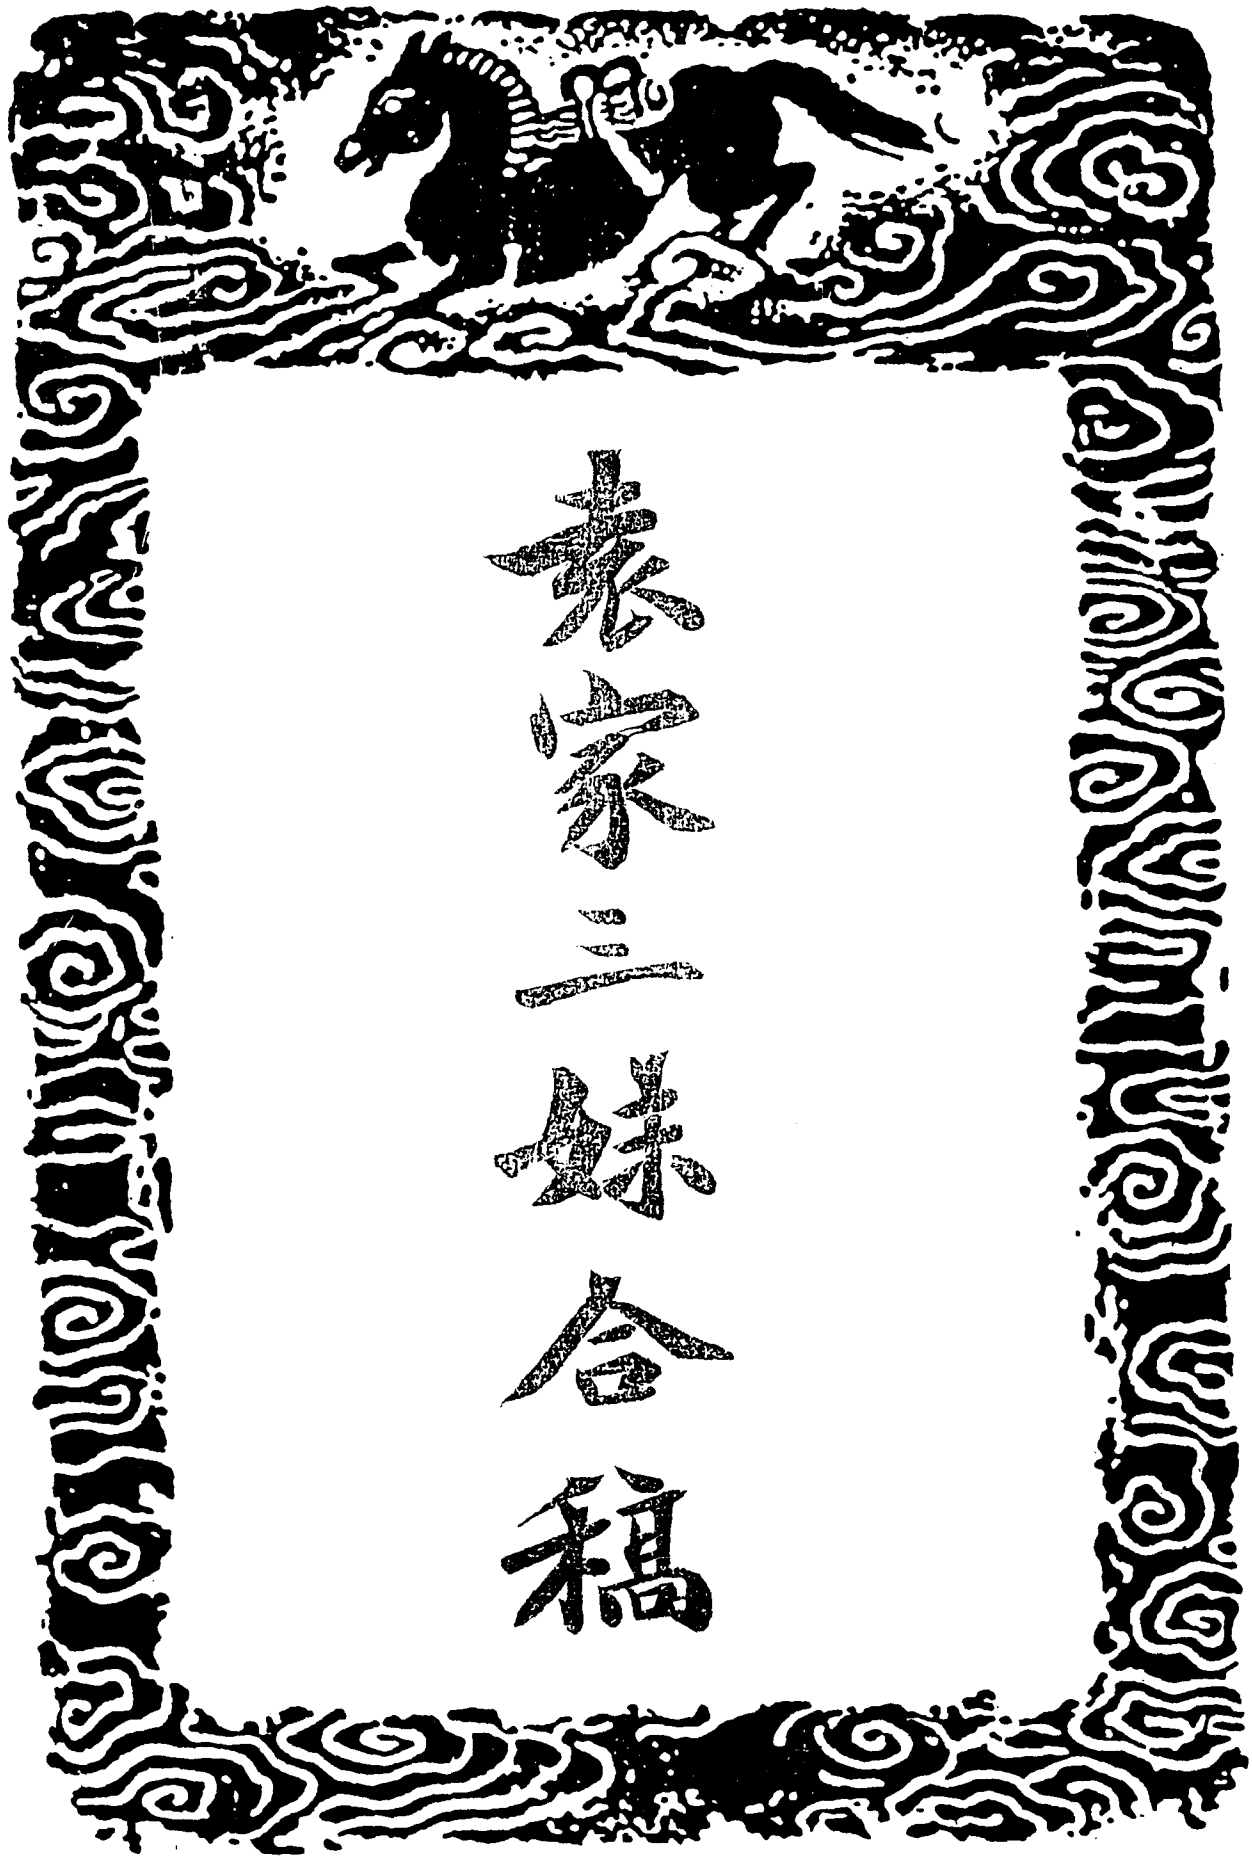 袁家三妹合稿